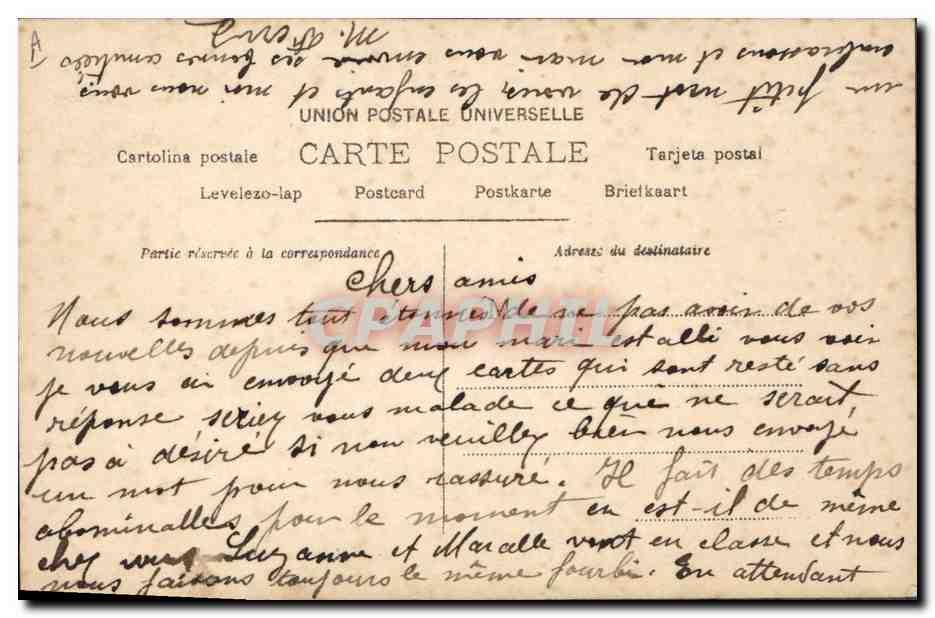 A
UNION POSTALE UNIVERSELLE
Cartolina postale CARTE POSTALE Tarjeta postal
Levelezo-lap Postcard Postkarte Briefkaart
Partie réservée à la correspondance
Adresse du destinataire
CPAPHIL
Chers amis
Nous sommes tout étonnés de ne pas avoir de vos
nouvelles depuis que mon mari est allé vous voir
je vous ai envoyé deux cartes qui sont resté sans
réponse seriez vous malade ce que ne serait
pas à désiré si non veuillez bien nous envoyé
un mot pour nous rassuré. Il fait des temps
abominalles pour le moment en est-il de même
chez vous Suzanne et Marcelle vont en classe et nous
nous faisons toujours le même fourbi. En attendant
un petit mot de vous, les enfants et moi nous vous
embrassons et mon mari vous envoie ses bonnes amitiés
M.